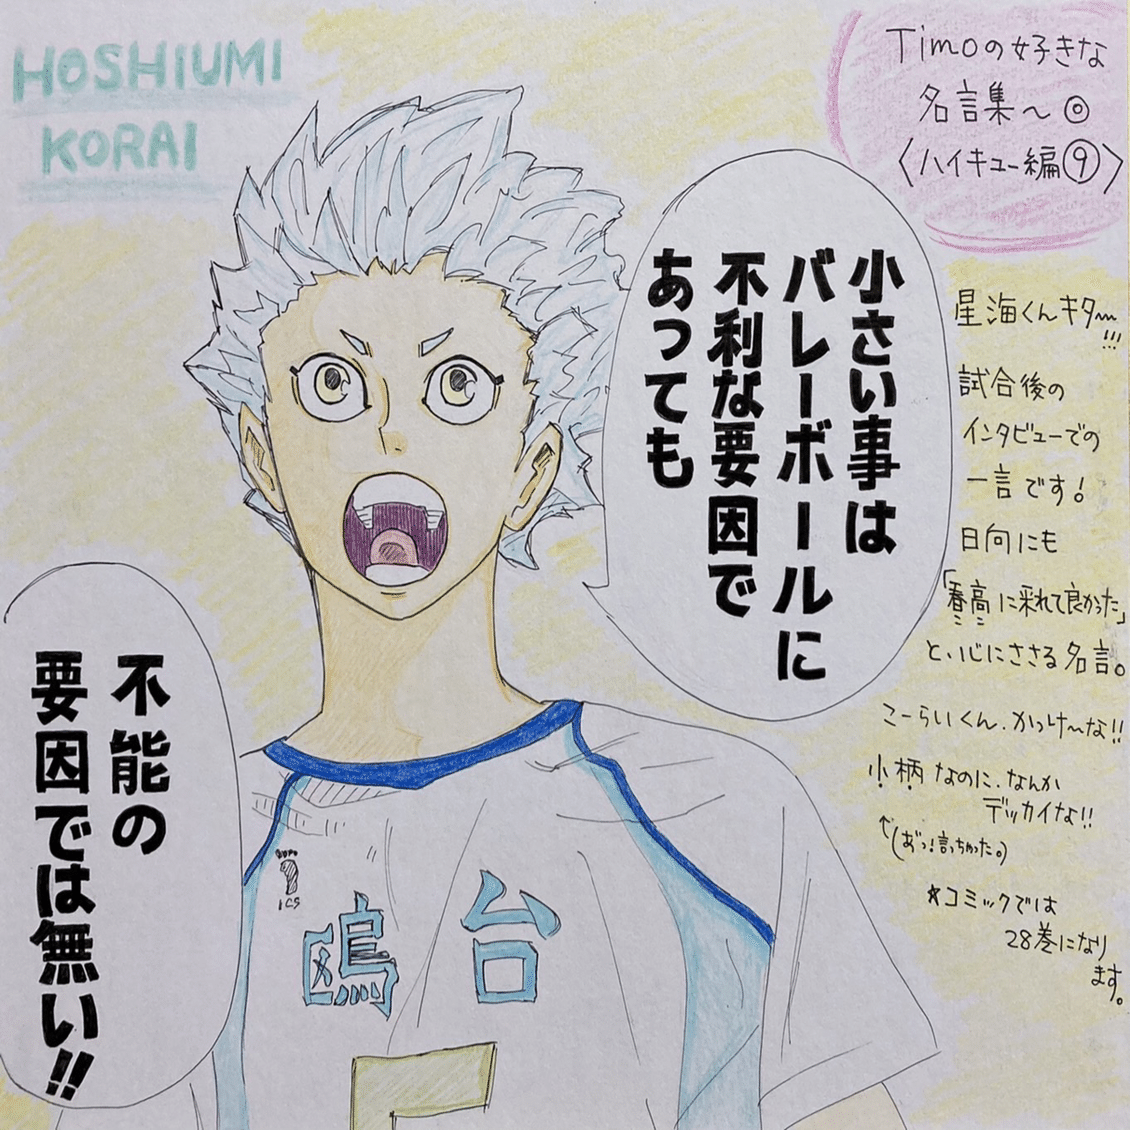 HOSHIUMI
KORAI
Timoの好きな
名言集〜◎
〈ハイキュー編⑨〉
小さい事は
バレーボールに
不利な要因で
あっても
不能の
要因では無い!!
星海くんキタ〜!!!
試合後の
インタビューでの
一言です!
日向にも
「春高に来れて良かった」
と、心にささる名言。
こーらいくん、かっけ〜な!!
小柄なのに、なんか
デッカイな!!
↑(あっ!言っちゃった。)
*コミックでは
28巻になり
ます。
鴎台